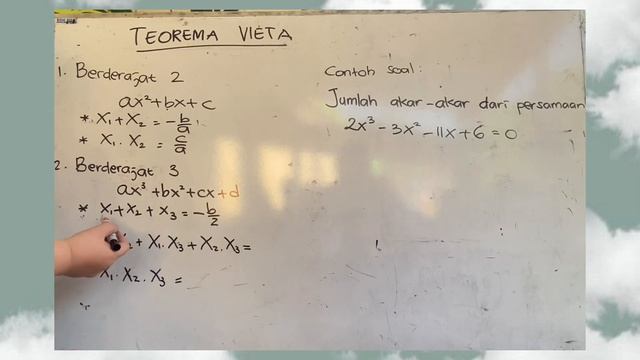 TEOREMA VIETA
1. Berderajat 2
ax²+bx+c
* X₁+X₂ = -b/a
* X₁.X₂ = c/a
2. Berderajat 3
ax³+bx²+cx+d
* X₁+X₂+X₃=-b/2
₂+X₁.X₃+X₂.X₃=
X₁.X₂.X₃ =
Contoh soal:
Jumlah akar-akar dari persamaan
2x³-3x²-11x+6=0